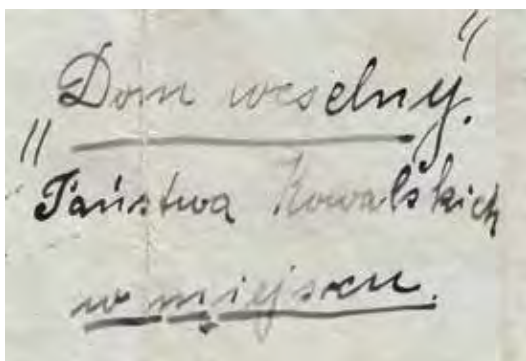 „Dom weselny”.
Państwa Kowalskich
w miejscu.